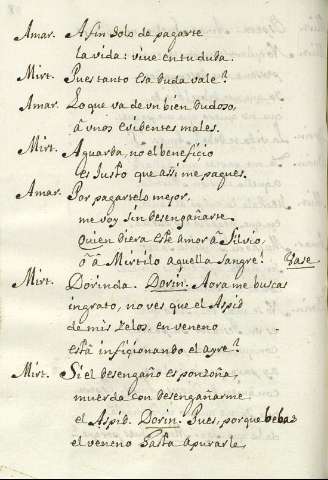 Amar. A fin solo de pagarte
la vida: vive en tu duda.
Mirt. Pues tanto esa duda vale?
Amar. Lo que va de un bien dudoso,
â unos evidentes males.
Mirt. Aguarda, nò el beneficio
es justo que assi me pagues.
Amar. Por pagartelo mejor,
me voy sin desengañarte.
Quien diera este amor â Silvio,
ô â Mirtilo aquella sangre! Vase.
Mirt. Dorinda. Dorin. Aora me buscas
ingrato, no ves que el Aspid
de mis zelos, en veneno
està inficionando el ayre?
Mirt. Si el desengaño es ponzoña,
muerda con desengañarme
el Aspid. Dorin. Pues, porque bebas
el veneno hasta apurarle,